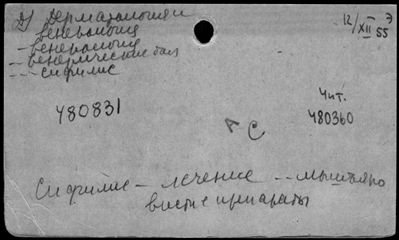 2) Дерматология и
венерология
- венерология
- венерические бол
- - - сифилис
12/XII 55 Э
480831
Чит.
480360
А С
Сифилис - лечение - - мышьяко
вистые препараты